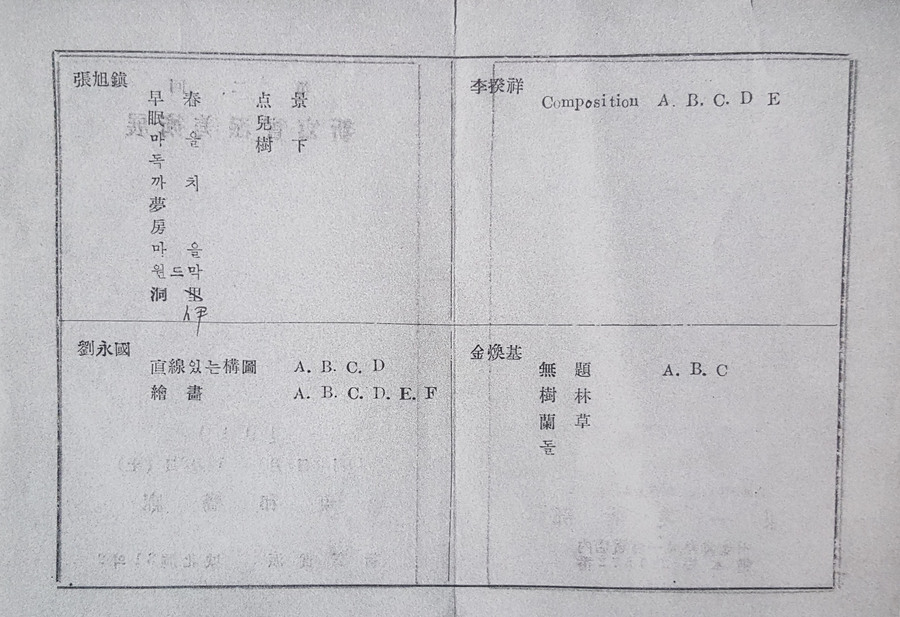 張旭鎭
早春 点景
眠 兒
마을 樹下
독
까치
夢
房
마을
원드막
洞里
伊
李揆祥
Composition A. B. C. D E
劉永國
直線있는構圖 A. B. C. D
繪畵 A. B. C. D. E. F
金煥基
無題 A. B. C
樹林
蘭草
돌